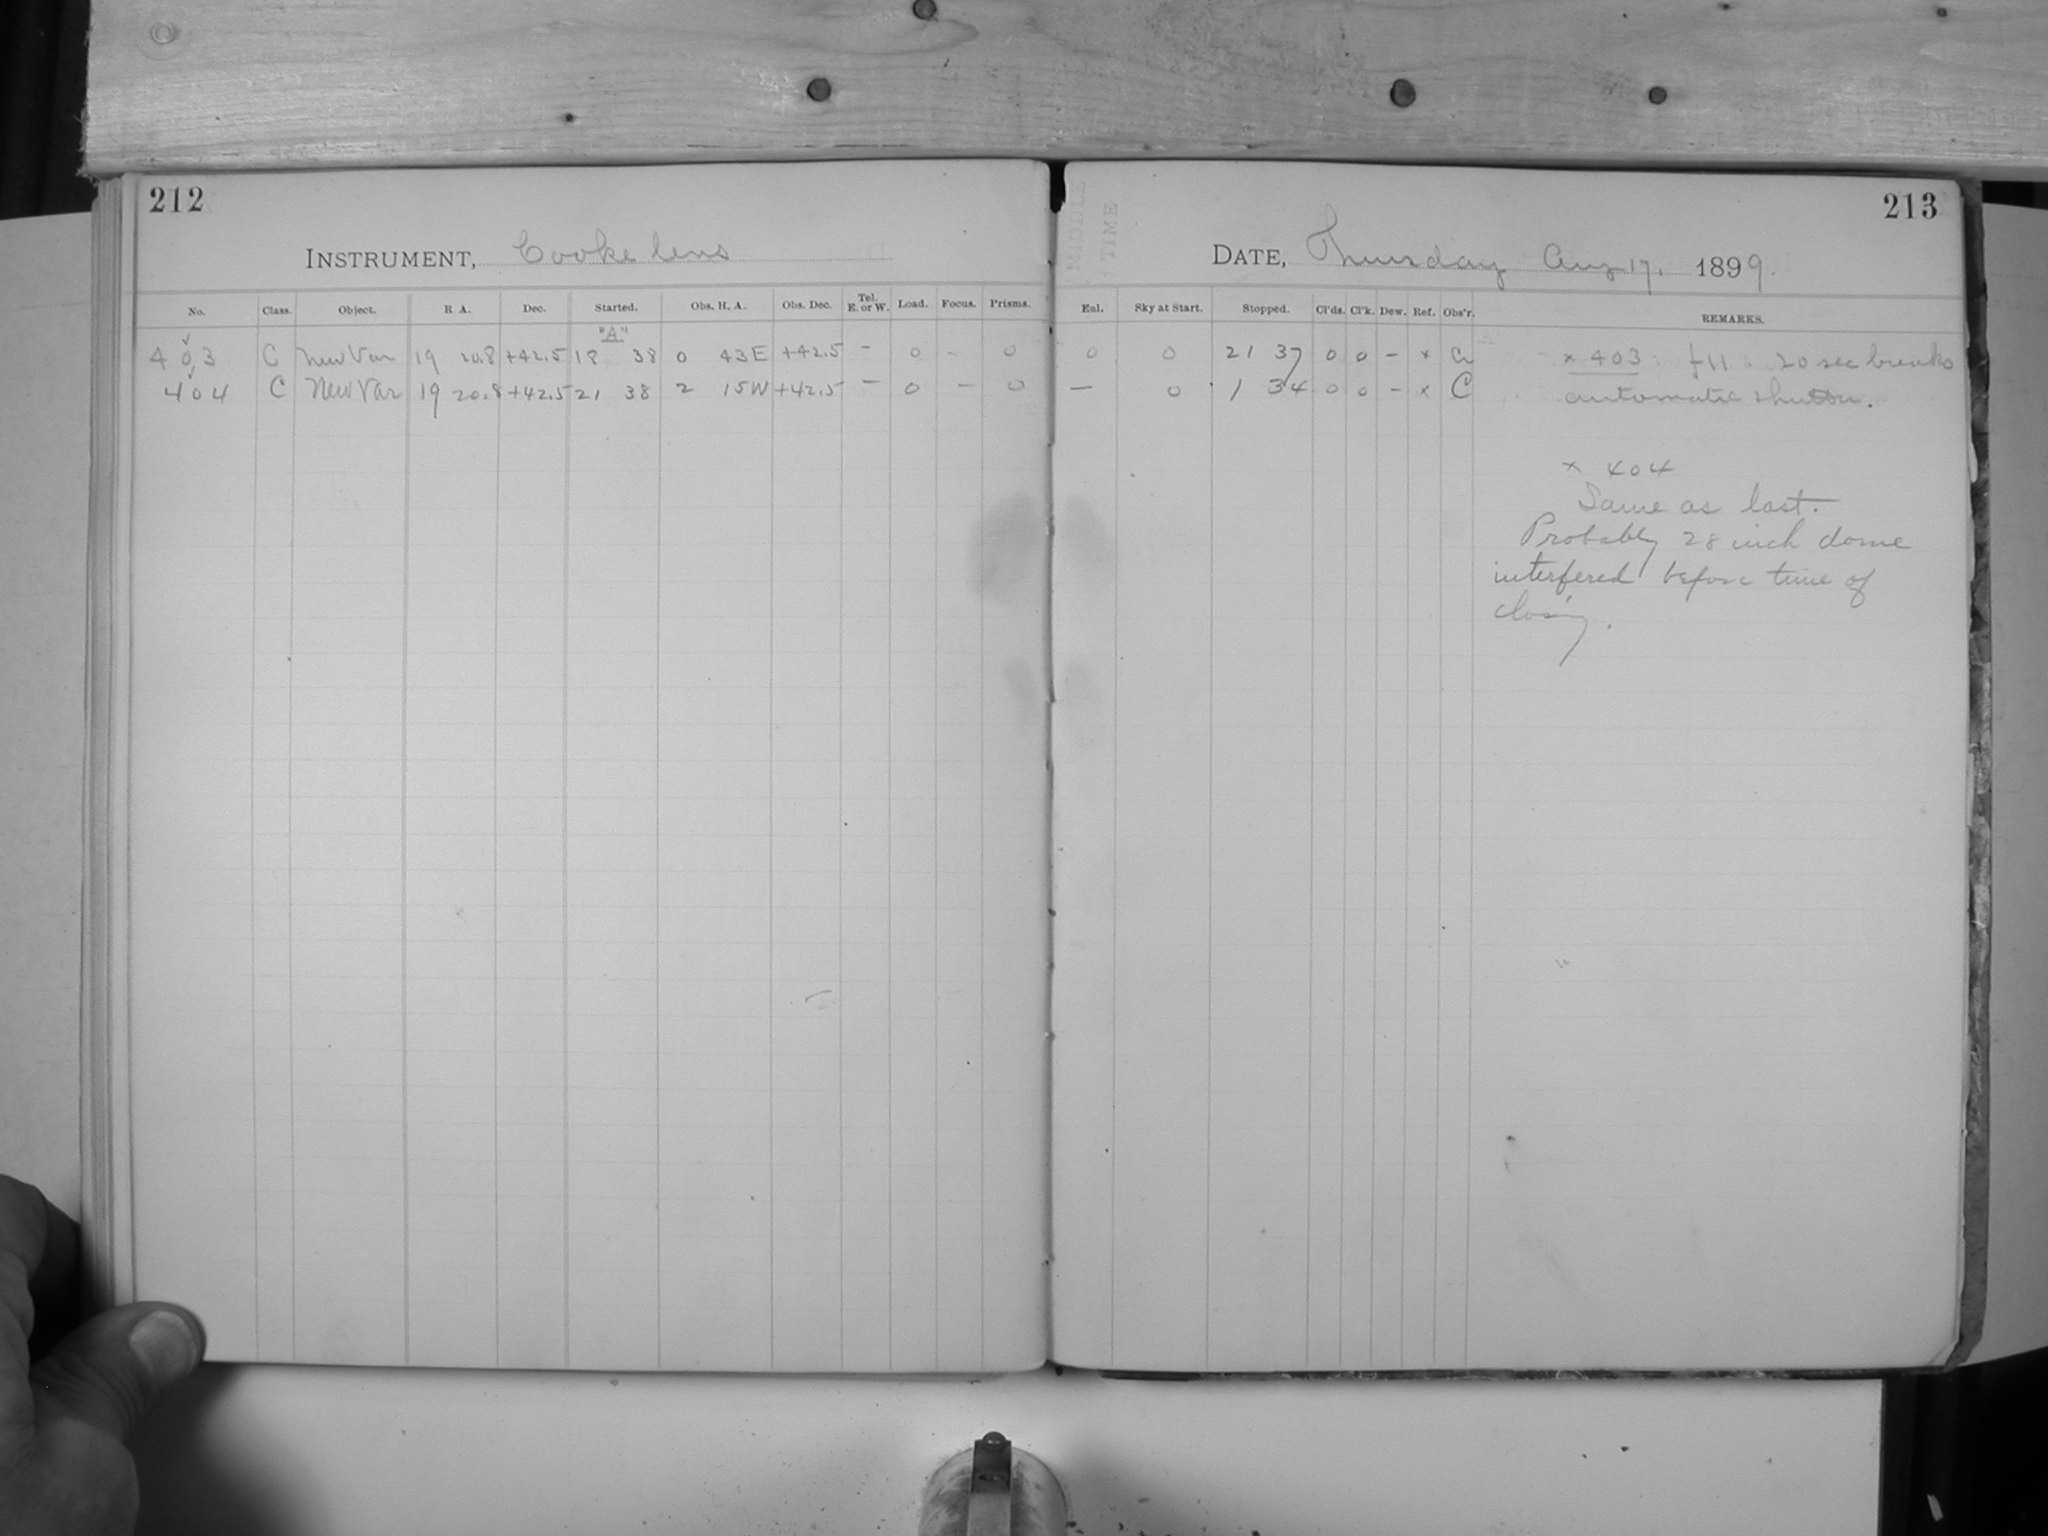 212
INSTRUMENT, Cooke lens
No. Class. Object. R. A. Dec. Started. Obs. H. A. Obs. Dec. Tel. E. or W. Load. Focus. Prisms.
"A"
403 C New Var 19 20.8 +42.5 18 38 0 43E +42.5 - 0 - 0
404 C New Var 19 20.8 +42.5 21 38 2 15W +42.5 - 0 - 0
MIDDLE
TIME
213
DATE, Thursday Aug 17, 1899.
Enl. Sky at Start. Stopped. Cl'ds. Cl'k. Dew. Ref. Obs'r. REMARKS.
0 0 21 37 0 0 - x C x 403: f11: 20 sec breaks
— 0 1 34 0 0 - x C automatic shutter.
x 404
Same as last.
Probably 28 inch dome
interfered before time of
closing.